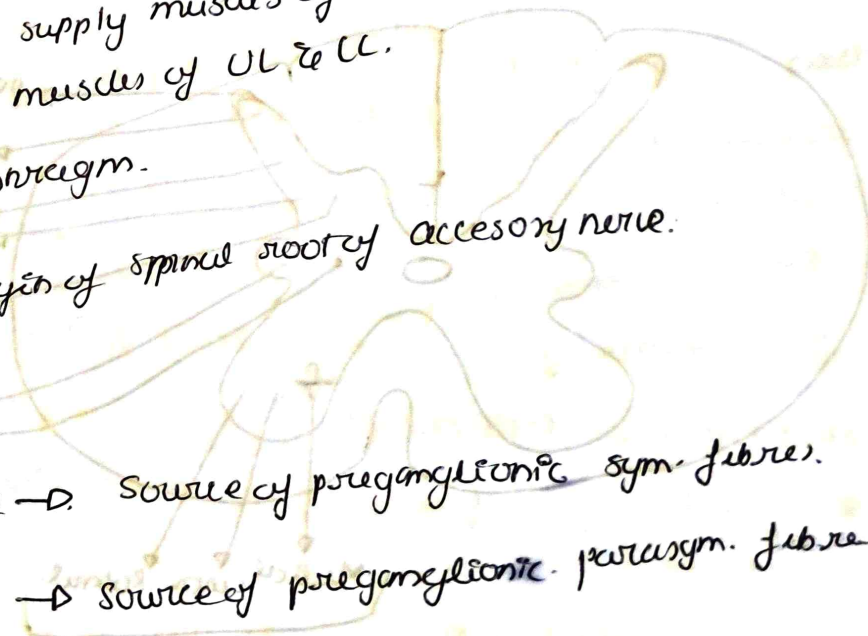 supply muscles of
muscles of UL & LL.
hragm.
gin of spinal root of accesory nerve.
→ Source of preganglionic sym. fibres.
→ Source of preganglionic. parasym. fibre